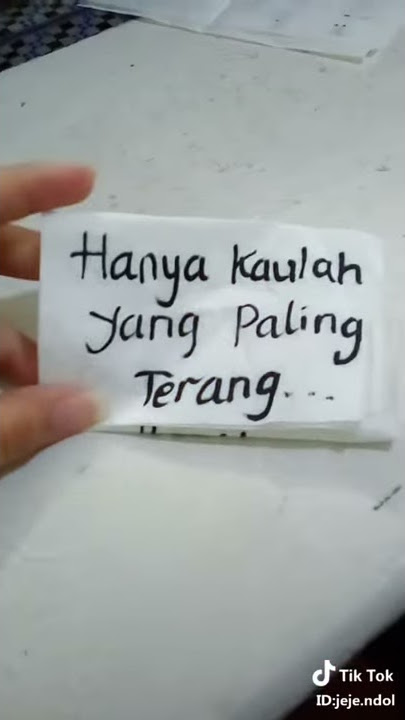 Hanya Kaulah
yang Paling
Terang...
Tik Tok
ID:jeje.ndol